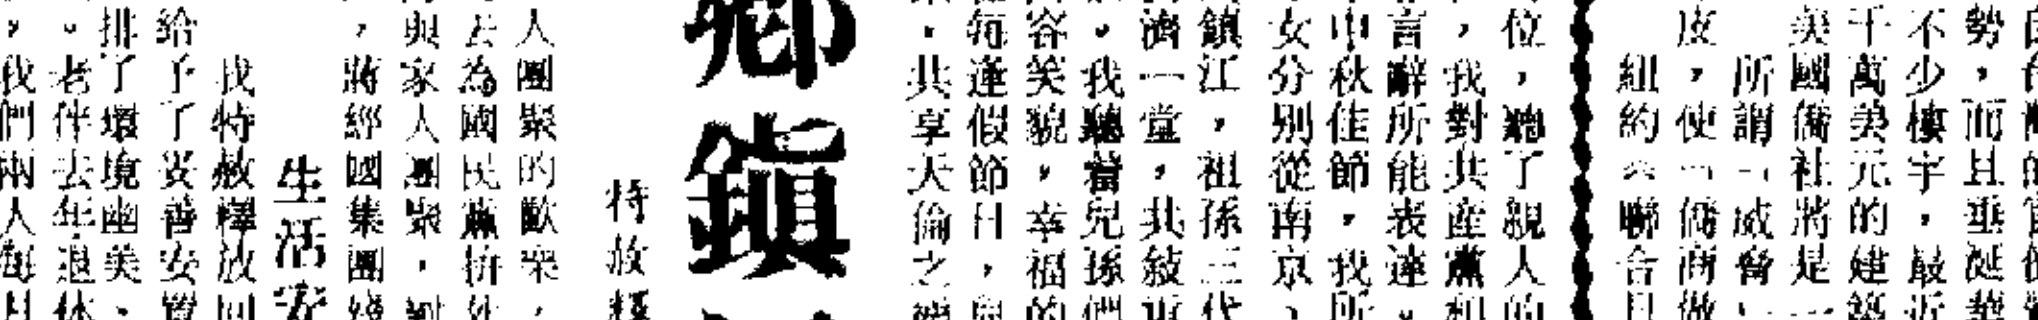 勢，而且垂涎
不少樓宇，最近
千萬美元的建築
美國僑社將是一
所謂「威脅
度，使「僑商做
紐約《聯合日
位，聽了親人的
，我對共產黨和
言辭所能表達。
中秋佳節，我所
女分別從南京、
鎮江，祖孫三代
濟一堂，共敍
，我聽着兒孫們
容笑貌，幸福的
每逢假節日，與
，共享天倫之
鄉鎮
特赦釋
人團聚的歡樂，
去為國民黨拼
與家人團聚，
，蔣經國集團殘
生活安
我特赦釋放回
給予了妥善安置
排了環境幽美、
。老伴去年退休
，我們兩人每月